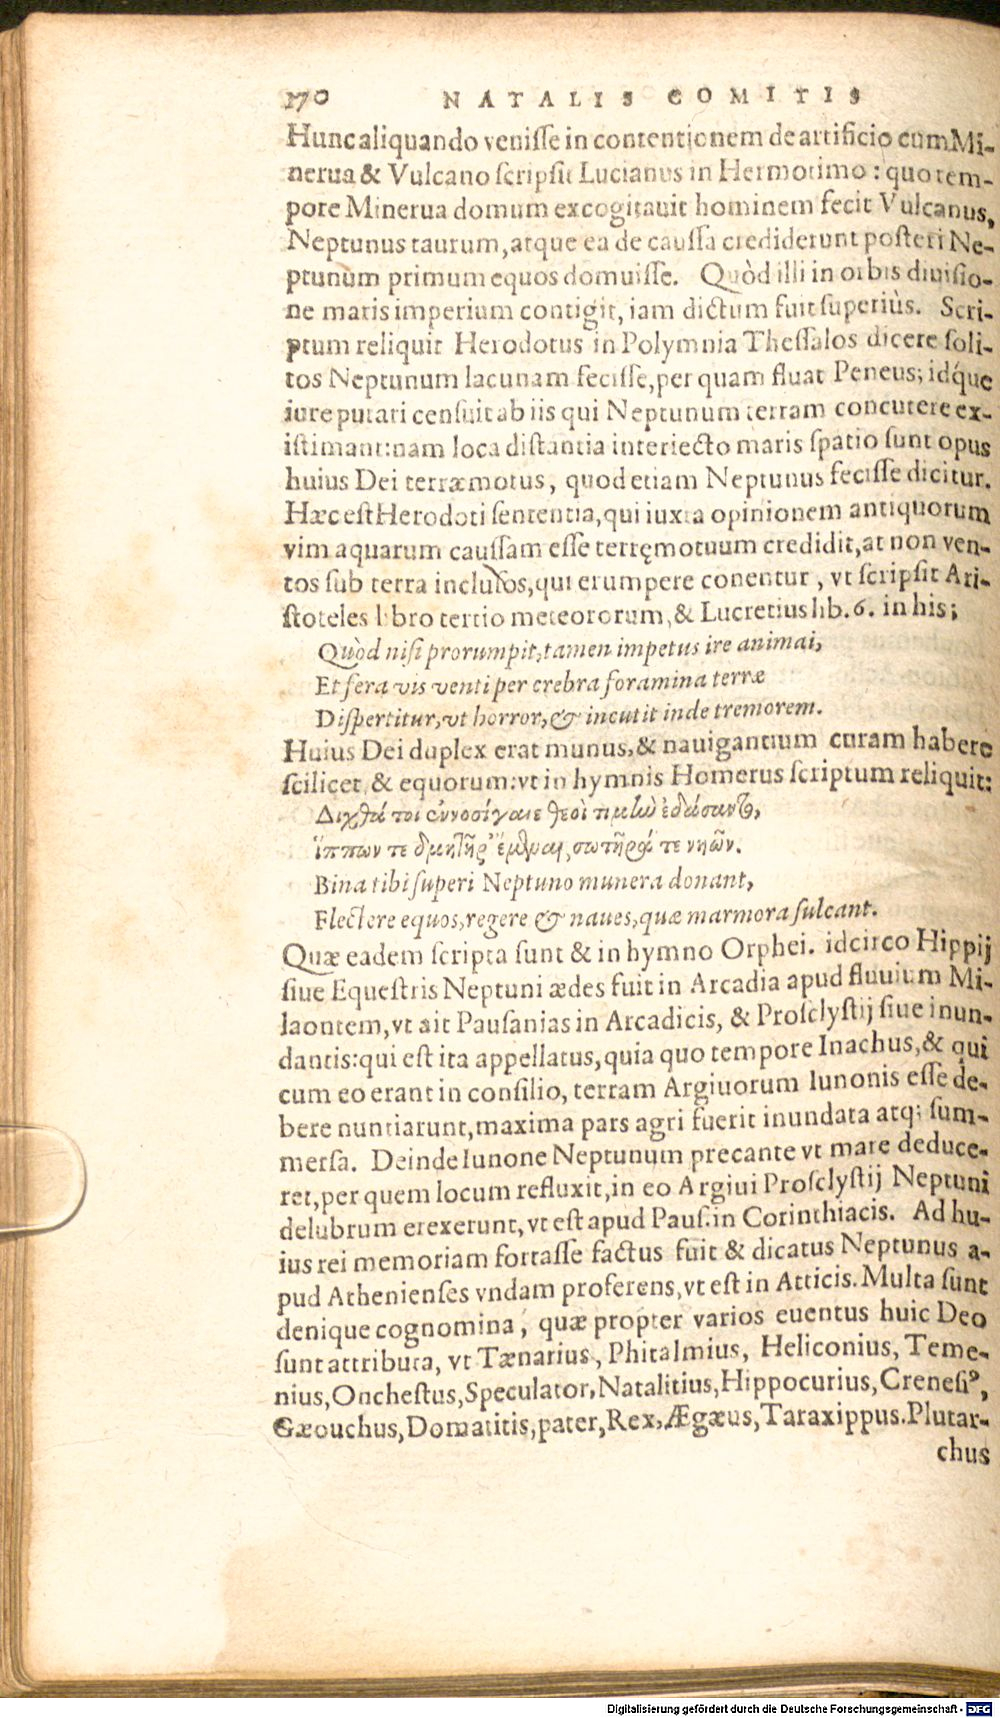 170 NATALIS COMITIS
Hunc aliquando veniſſe in contentionem de artificio cum Mi-
nerua & Vulcano ſcripſit Lucianus in Hermotimo: quo tem-
pore Minerua domum excogitauit hominem fecit Vulcanus,
Neptunus taurum, atque ea de cauſſa crediderunt poſteri Ne-
ptunum primum equos domuiſſe. Quòd illi in orbis diuiſio-
ne maris imperium contigit, iam dictum fuit ſuperiùs. Scri-
ptum reliquit Herodotus in Polymnia Theſſalos dicere ſoli-
tos Neptunum lacunam feciſſe, per quam fluat Peneus; idq́ue
iure putari cenſuit ab iis qui Neptunum terram concutere ex-
iſtimant: nam loca diſtantia interiecto maris ſpatio ſunt opus
huius Dei terræmotus, quod etiam Neptunus feciſſe dicitur.
Hæc eſt Herodoti ſententia, qui iuxta opinionem antiquorum
vim aquarum cauſſam eſſe terręmotuum credidit, at non ven-
tos ſub terra incluſos, qui erumpere conentur, vt ſcripſit Ari-
ſtoteles libro tertio meteororum, & Lucretius lib. 6. in his;
Quòd niſi prorumpit, tamen impetus ire animai,
Et fera vis venti per crebra foramina terræ
Diſpertitur, vt horror, & incutit inde tremorem.
Huius Dei duplex erat munus, & nauigantium curam habere
ſcilicet & equorum: vt in hymnis Homerus ſcriptum reliquit:
Διχθά τοι ἐννοσίγαιε θεοὶ τιμὴν ἐδάσαντο,
ἵππων τε δμητῆρ' ἔμεναι, σωτῆρά τε νηῶν.
Bina tibi ſuperi Neptuno munera donant,
Flectere equos, regere & naues, quæ marmora ſulcant.
Quæ eadem ſcripta ſunt & in hymno Orphei. idcirco Hippij
ſiue Equeſtris Neptuni ædes fuit in Arcadia apud fluuium Mi-
laontem, vt ait Pauſanias in Arcadicis, & Proſclyſtij ſiue inun-
dantis: qui eſt ita appellatus, quia quo tempore Inachus, & qui
cum eo erant in conſilio, terram Argiuorum Iunonis eſſe de-
bere nuntiarunt, maxima pars agri fuerit inundata atq; ſum-
merſa. Deinde Iunone Neptunum precante vt mare deduce-
ret, per quem locum refluxit, in eo Argiui Proſclyſtij Neptuni
delubrum erexerunt, vt eſt apud Pauſ. in Corinthiacis. Ad hu-
ius rei memoriam fortaſſe factus fuit & dicatus Neptunus a-
pud Athenienſes vndam proferens, vt eſt in Atticis. Multa ſunt
denique cognomina, quæ propter varios euentus huic Deo
ſunt attributa, vt Tænarius, Phitalmius, Heliconius, Teme-
nius, Oncheſtus, Speculator, Natalitius, Hippocurius, Creneſiꝰ,
Gæouchus, Domatitis, pater, Rex, Ægæus, Taraxippus. Plutar-
chus
Digitalisierung gefördert durch die Deutsche Forschungsgemeinschaft - DFG